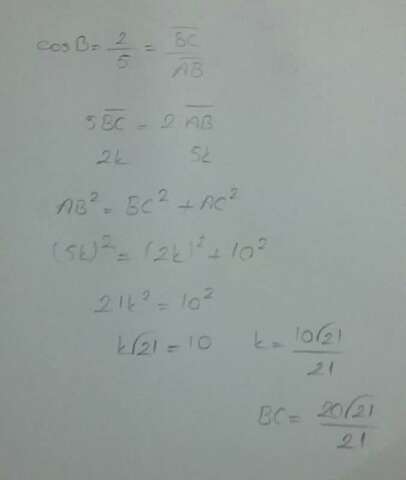 cosB = 2/5 = BC/AB
5BC = 2 AB
2k 5k
AB² = BC² + AC²
(5k)² = (2k)² + 10²
21k² = 10²
k√21 = 10 k = 10√21/21
BC = 20√21/21